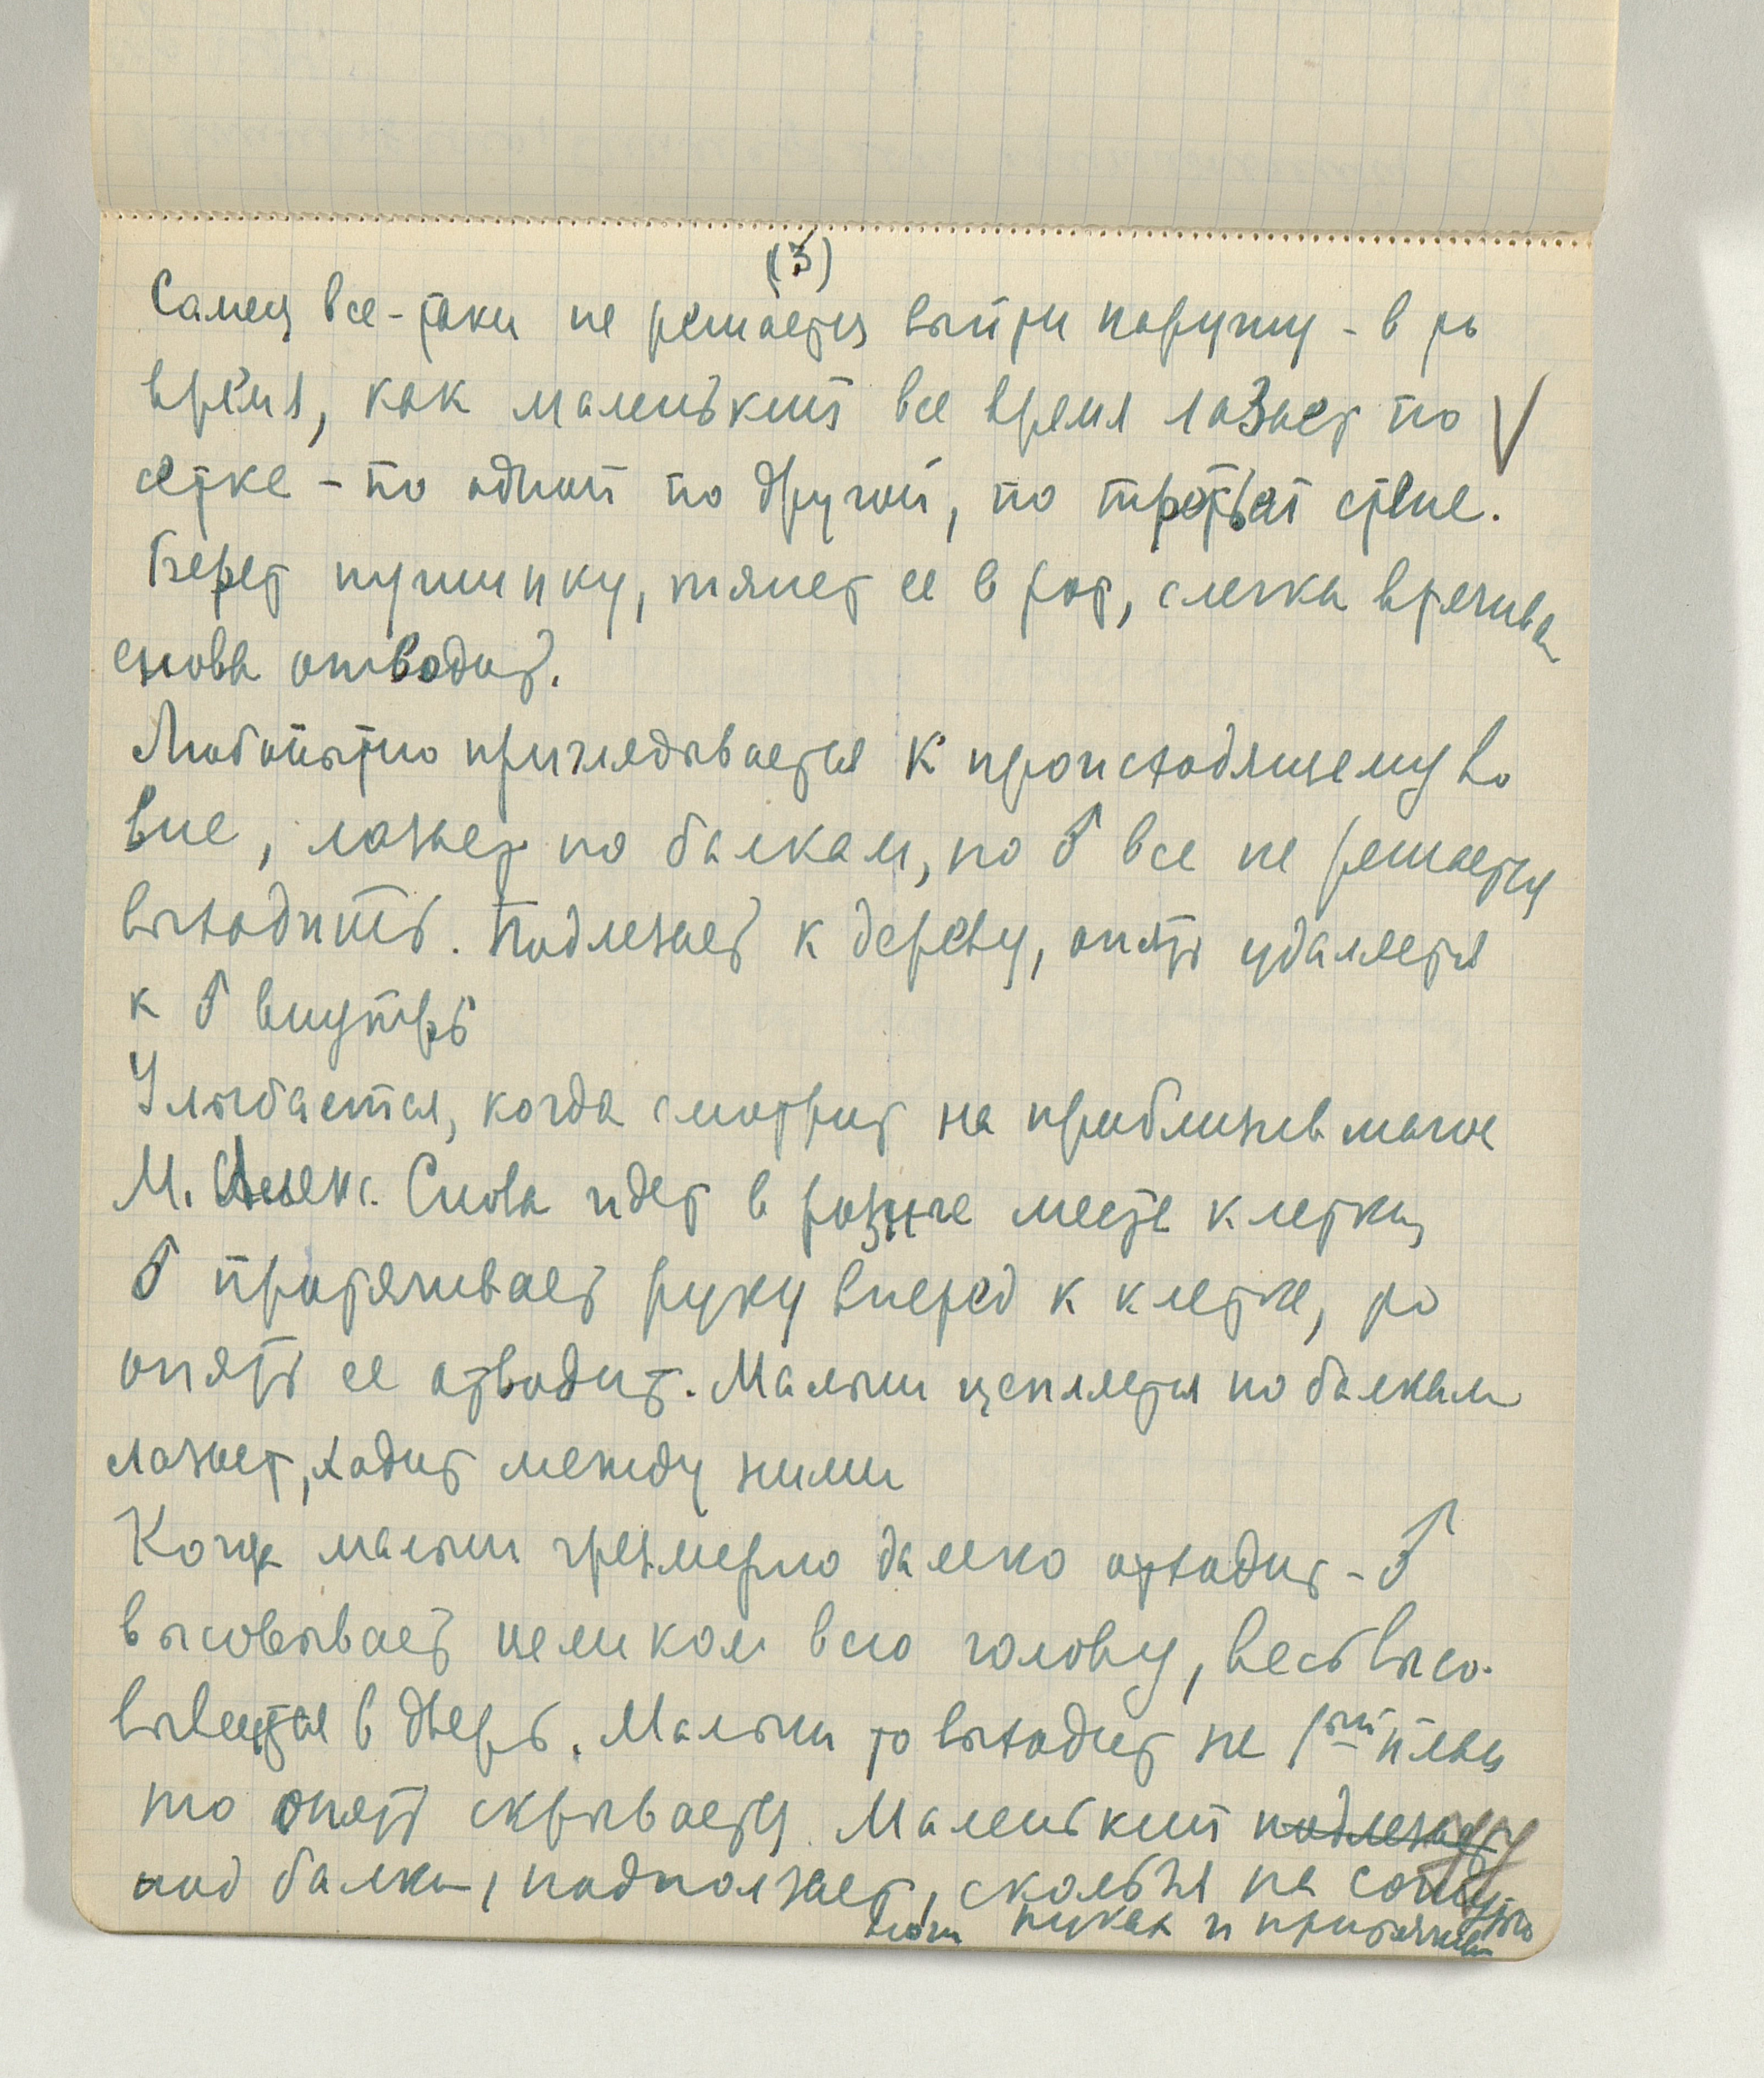 (3)
Самец все-таки не решается выйти наружу - в то
время, как маленький все время лазает по V
сетке - по одной по другой, по третьей стене.
Берет пушинку, тянет ее в рот, слегка
снова отводит.
Любопытно приглядывается к происходящему во
вне, лазает по балкам, но ♂ все не решается
выходить. Подлезает к дереву, опять удаляется
к ♂ внутрь
Улыбается, когда смотрит на
М. Алекс. Снова идет в разные места клетки,
♂ протягивает руку вперед к клетке, то
опять ее отводит. Малыш цепляется по балкам
лазает, ходит между ними
Когда малыш чрезмерно далеко отходит - ♂
высовывает целиком всю голову, весь высо-
вывается в дверь. Малыш то выходит на 1ый план
то опять скрывается. Маленький подлезает
под балки, подползает, скользя на
руках и